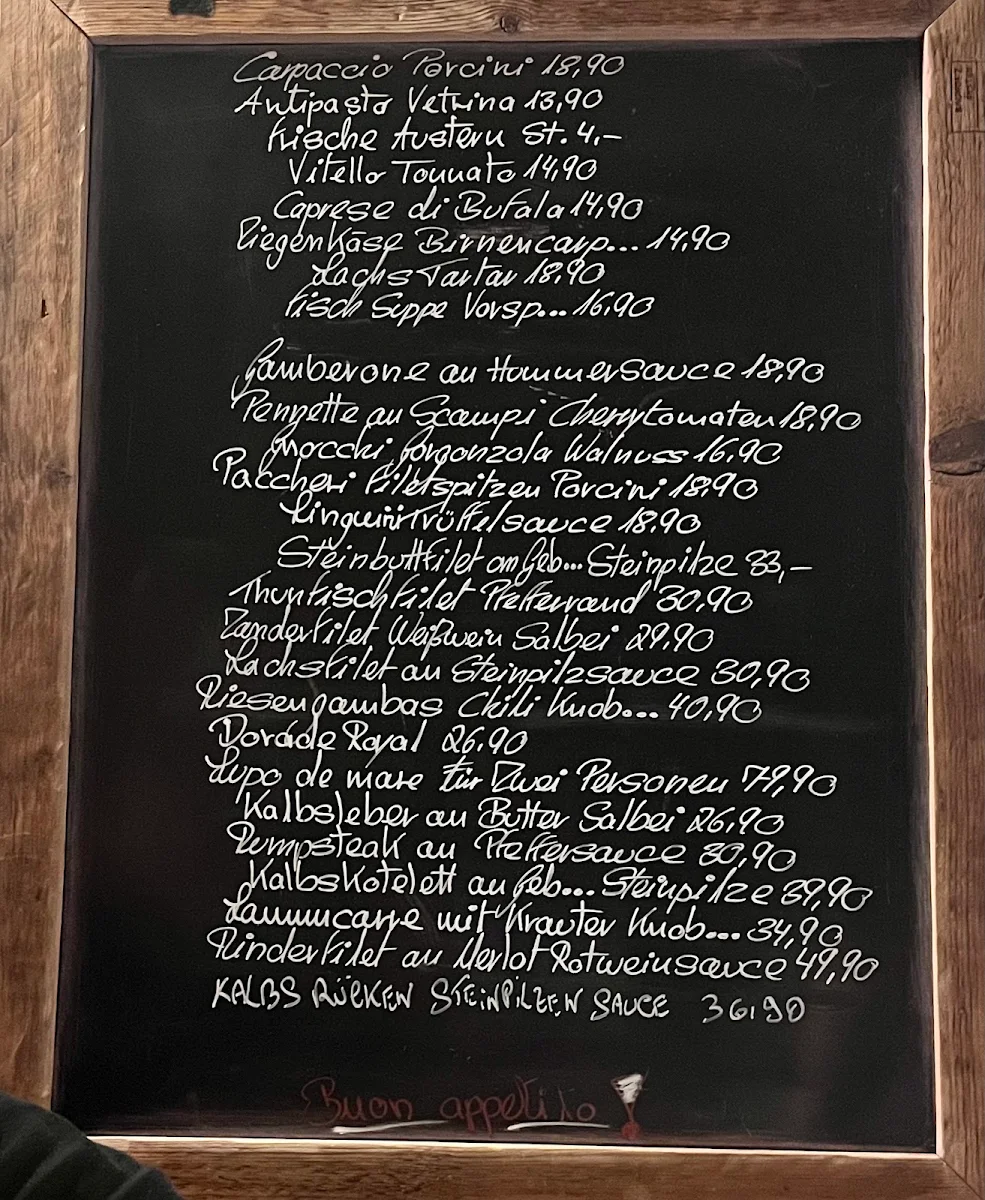 Carpaccio Porcini 18,90
Antipasto Vetrina 13,90
Frische Austern St. 4,–
Vitello Tonnato 14,90
Caprese di Bufala 14,90
Ziegenkäse Birnencarp... 14,90
Lachs Tartar 18,90
Fisch Suppe Vorsp... 16,90
Gamberone an Hummersauce 18,90
Pennette an Scampi Cherrytomaten 18,90
Gnocchi Gorgonzola Walnuss 16,90
Paccheri Filetspitzen Porcini 18,90
Linguini Trüffelsauce 18,90
Steinbuttfilet an Geb... Steinpilze 33,–
Thunfischfilet Pfefferrand 30,90
Zanderfilet Weißwein Salbei 29,90
Lachsfilet an Steinpilzsauce 30,90
Riesengambas Chili Knob... 40,90
Dorade Royal 26,90
Lupo de mare für Zwei Personen 79,90
Kalbsleber an Butter Salbei 26,90
Rumpsteak an Pfeffersauce 30,90
Kalbskotelett an Geb... Steinpilze 39,90
Lammcarre mit Kräuter Knob... 34,90
Rinderfilet an Merlot Rotweinsauce 49,90
KALBS RÜCKEN STEINPILZEN SAUCE 36,90
Buon appetito!